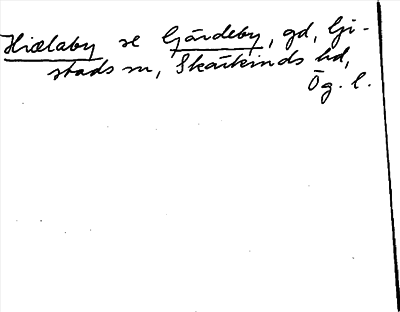 Hiælaby se Gärdeby, gd, Gi-
stads sn, Skärkinds hd,
Ög. l.